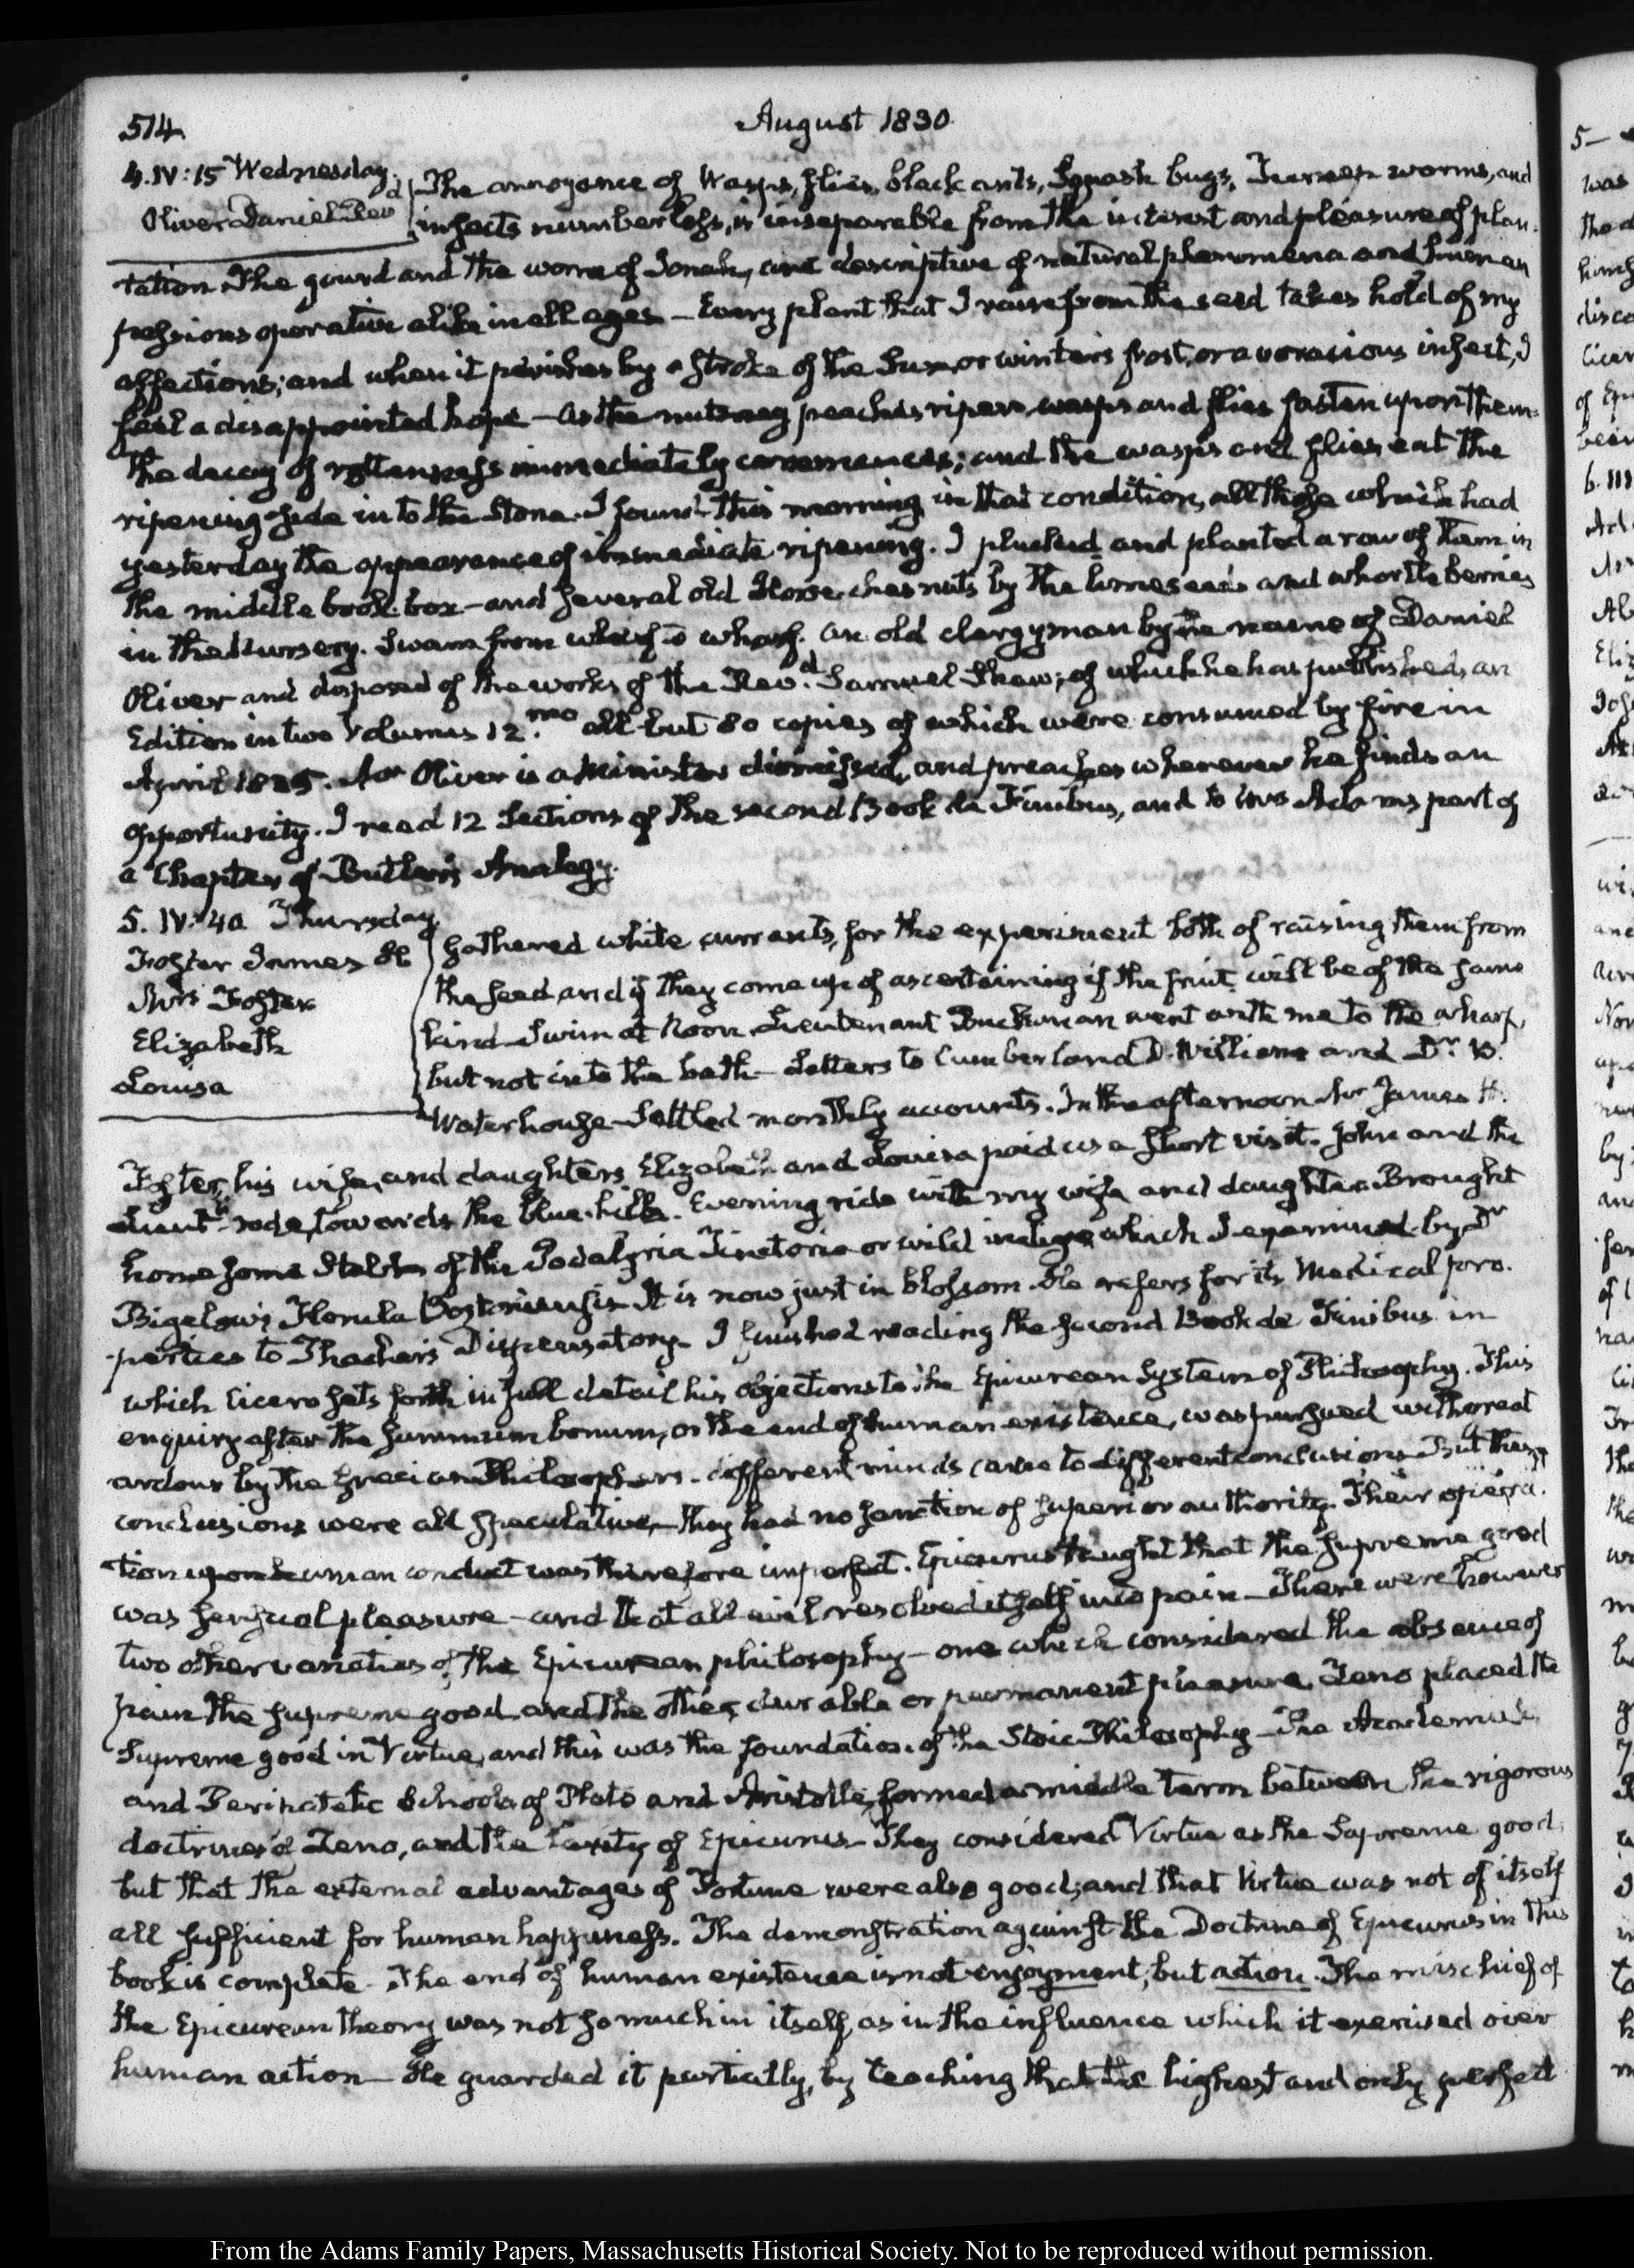 514.
August 1830.
4. IV:15 Wednesday.
Oliver Daniel Revd
The annoyance of Wasps, flies, black ants, Squash bugs, worms, and
insects numberless, is inseparable from the interest and pleasure of plan-
tation. The gourd and the worm of Jonah, are descriptive of natural phenomena and human
passions operative alike in all ages — Every plant that I raise from the seed takes hold of my
affections; and when it perishes by a stroke of the Sun, or winter's frost, or a voracious insect, I
feel a disappointed hope — As the nutmeg peaches ripen wasps and flies fasten upon them.
The decay of rottenness immediately commences; and the wasps and flies eat the
ripening side in to the Stone. I found this morning in that condition, all those which had
yesterday the appearance of immediate ripening. I plucked and planted a row of them in
the middle book-box — and several old Horse chesnuts by the limeseeds and whortleberries
in the Nursery. Swam from wharf to wharf. An old clergyman by the name of Daniel
Oliver and disposed of the works of the Revd. Samuel Shaw; of which he has published, an
Edition in two Volumes 12.mo all but 80 copies of which were consumed by fire in
April 1825. Mr Oliver is a Minister dismissed, and preaches wherever he finds an
opportunity. I read 12 Sections of the second Book de Finibus, and to Mrs Adams part of
a Chapter of Butler's Analogy.
5. IV:40 Thursday
Foster James H.
Mrs Foster
Elizabeth
Louisa
Gathered white currants, for the experiment both of raising them from
the seed and if they come up of ascertaining if the fruit will be of the same
kind — Swim at Noon Lieutenant Buchanan went with me to the wharf,
but not into the bath — Letters to Cumberland D. Williams and Dr. B.
Waterhouse — Settled monthly accounts. In the afternoon Mr James H.
Foster, his wife, and daughters Elizabeth and Louisa paid us a short visit. John and the
Lieutt. rode towards the blue-hills. Evening ride with my wife and daughter. Brought
home some Stalks of the Podalyria Tinctoria or wild indigo, which I examined by Dr
Bigelow's Florula Bostoniensis. It is now just in blossom. He refers for its Medical pro-
perties to Thacher's Dispensatory — I finished reading the second Book de Finibus in
which Cicero sets forth in full detail his objections to the Epicurean System of Philosophy. This
enquiry after the summum bonum, or the end of human existence, was pursued with great
ardour by the Grecian Philosophers — different minds came to different conclusions — But these
conclusions were all speculative — they had no sanction of superior authority. Their opera-
tion upon human conduct was therefore imperfect. Epicurus taught that the supreme good
was sensual pleasure — and that all evil resolved itself into pain — There were however
two other varieties of the Epicurean philosophy — one which considered the absence of
pain the supreme good, and the other, durable or permanent pleasure. Zeno placed the
Supreme good in Virtue, and this was the foundation of the Stoic Philosophy — The Academic
and Peripatetic Schools of Plato and Aristotle, formed a middle term between the rigorous
doctrines of Zeno, and the laxity of Epicurus — They considered Virtue as the Supreme good;
but that the external advantages of Fortune were also good; and that Virtue was not of itself
all sufficient for human happiness. The demonstration against the Doctrine of Epicurus in this
book is complete. The end of human existence is not enjoyment, but action. The mischief of
the Epicurean theory was not so much in itself, as in the influence which it exercised over
human action — He guarded it partially, by teaching that the highest and only perfect
From the Adams Family Papers, Massachusetts Historical Society. Not to be reproduced without permission.